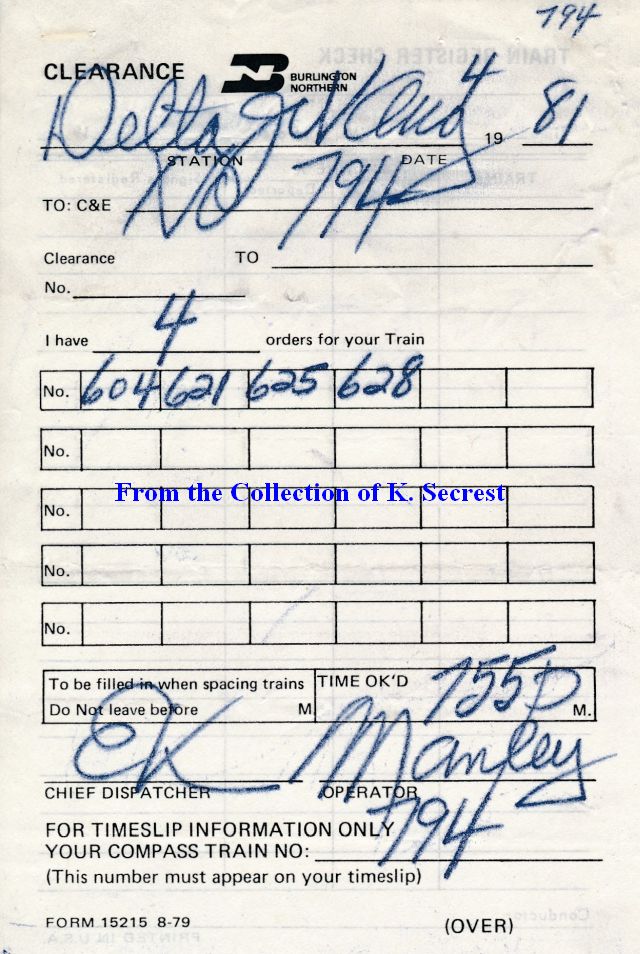 794
CLEARANCE BN BURLINGTON NORTHERN
Delta 4 19 81
STATION DATE
TO: C&E No 794
Clearance TO
No.
I have 4 orders for your Train
No. 604 621 625 628
No.
No.
From the Collection of K. Secrest
No.
No.
To be filled in when spacing trains TIME OK'D 755 P
Do Not leave before M. M.
EK Manley
CHIEF DISPATCHER OPERATOR
FOR TIMESLIP INFORMATION ONLY
YOUR COMPASS TRAIN NO: 794
(This number must appear on your timeslip)
FORM 15215 8-79 (OVER)